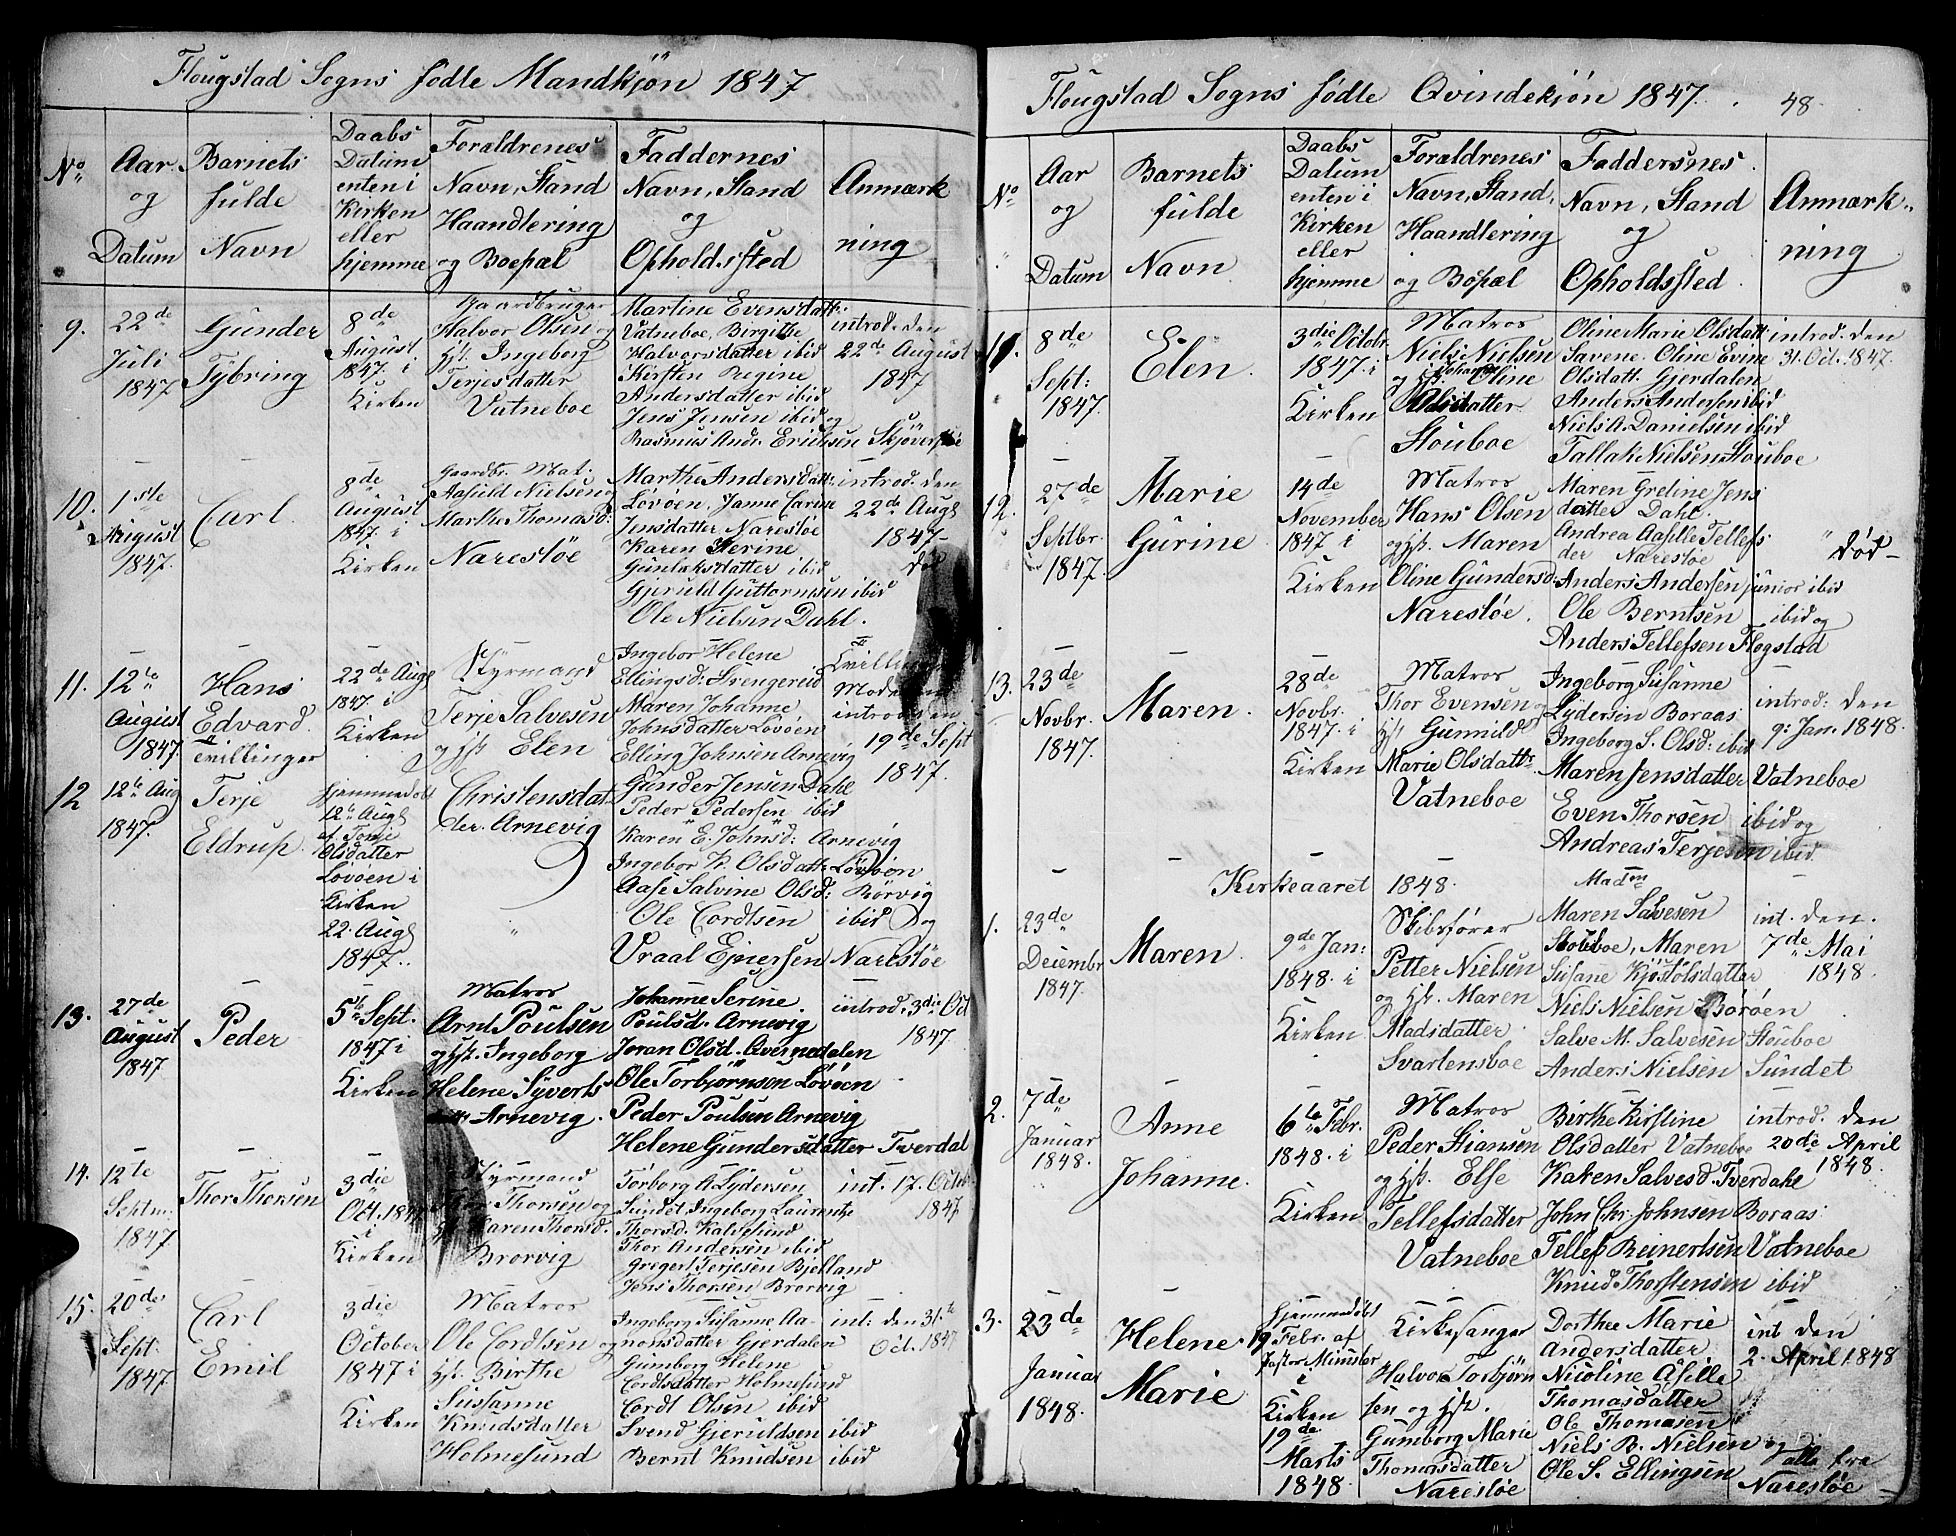 Flougstad Sogns fødte Mandkjøn 1847
No
Aar og Datum
Barnets fulde Navn
Daabs Datum enten i Kirken eller hjemme
Foraldrenes Navn, Stand Haandtering og Boepæl
Faddernes Navn, Stand og Opholdssted
Anmærkning
9.
22de Juli 1847
Gunder Tybring
8de August 1847. i Kirken
Gaardbruger
Halvor Olsen og
Hst. Ingeborg
Terjesdatter
Vatneboe
Martine Evensdatt:
Vatneboe, Birgithe
Halvorsdatter ibid
Kirsten Regine
Andersdatter ibid
Jens Jensen ibid og
Rasmus And. Ericksen
introd. den
22de August
1847
10.
1ste August 1847.
Carl
8de August 1847. i Kirken
Gaardbr. Mat.
Aasuld Nielsen og
Marthe Thomasd:
Narestøe
Marthe Andersdatt:
Løvøen, Janne Carine
Jensdatter Narestøe
Karen Serine
Gunlaksdatter ibid
Gjeruld Guttormsen ibid
Ole Nielsen Dahl.
introd. den
22de Augs
1847
død
11.
12te August 1847.
Hans Edvard
tvillinger
22de Augs
1847. i
Kirken
Styrmand
Terje Salvesen
og hst Elen
Ingebor Helene
Ellingsd: Strengereid
Maren Johanne
Johnsdatter Løvøen
Elling Johnsen Arnevig
Gunder Jensen Dahl
Moderen
introd.
19de Sept
1847.
12
12te Aug 1847.
Terje Eldrup
hjemmedøbt
12te Augs
af Tonie
Olsdatter
Løvøen i
Kirken
22. Augs
1847.
Christensdat
ter. Arnevig
Peder Pedersen ibid
Karen E. Johnsd: Arnevig
Ingebor K. Olsdatt: Løvøen
Aase Salvine Olsd: Rørvig
Ole Cordtsen ibid og
Vraal Ejnersen Narestøe
13.
27de August 1847
Peder
5te Sept. 1847 i Kirken
Matros
Arnt Poulsen
og Hst. Ingeborg
Helene Syverts
Arnevig.
Johanne Serine
Poulsd. Arnevig
Joran Olsd. Qvernedalen
Ole Torbjørnsen Løvøen
Peder Poulsen Arnevig
Helene Gundersdatter Tverdal
introd. 3die Oct
1847
14.
12te Septm. 1847
Thor Thorsen
3die Oct. 1847 i Kirken
Styrmand
Thor Thorsen og
hst Karen Thorsd.
Brorvig
Torborg A. Lydersen
Sundet, Ingeborg Lauentze
Thorsd. Kalvesund
Thor Andersen ibid
Gregert Terjesen Bjelland
Jens Thorsen Brorvig
int. 17. Octobr
1847
15.
20de Sept. 1847
Carl Emil
3die October 1847 i Kirken
Matros
Ole Cordtsen og
Hst. Birthe
Susanne
Knudsdatter
Holmesund
Ingeborg Susanne Aa-
nonsdatter Gjerdalen
Gumborg Helene
Cordtsdatter Holmesund
Cordt Olsen ibid
Svend Gjeruldsen ibid
Bernt Knudsen ibid
int: den 31te
Oct. 1847
Flougstad Sogns fødte Qvindekjøn 1847.
48.
No
Aar og Datum
Barnets fulde Navn
Daabs Datum enten i Kirken eller hjemme
Foraldrenes Navn, Stand, Haandtering og Bopæl
Faddersnes Navn, Stand og Opholdssted
Anmærkning
11.
8de Sept: 1847.
Elen.
3die Octobr. 1847. i Kirken
Matros
Niels Nielsen
og hst. Johanne Oline
Olsdatter
Stouboe
Oline Marie Olsdatt:
Savene. Oline Evine
Olsdatt. Gjerdalen
Anders Andersen ibid
Niels A. Danielsen ibid
Tallak Nielsen Stouboe
introd. den
31. Oct. 1847.
12.
27de Septbr. 1847.
Marie Gurine
14de November 1847 i Kirken
Matros
Hans Olsen
og hst. Maren
Oline Gundersd:
Narestøe.
Maren Gretine Jens
datter Dahl.
Andrea Aaselle Tellefs
der Narestøe
Anders Andersen junior ibid
Ole Berntsen ibid og
Anders Tellefsen Flogstad
død
13.
23de Novbr. 1847.
Maren.
28de Novbr. 1847. i Kirken
Matros
Thor Evensen og
hst Gunnild
Marie Olsdattr
Vatneboe
Ingeborg Susanne
Lydersen Boraas
Ingeborg S. Olsd: ibid
Maren Jensdatter Vatneboe
Even Thorsen ibid og
Andreas Terjesen ibid.
introd: den
9. Jan. 1848.
Kirkeaaret 1848.
1.
23de Decembr 1847.
Maren.
9de Jan: 1848. i Kirken
Skibsfører
Petter Nielsen
og hst. Maren
Madsdatter
Svartensboe
Madm
Maren Salvesen
Stouboe, Maren
Susane Kjøstolsdatter
Niels Nielsen Borøen
Salve M. Salvesen Stouboe
Anders Nielsen Sundet
int. den.
7de Mai
1848.
2.
7de Januar 1848.
Anne Johanne.
6te Febr. 1848. i Kirken
Matros
Peder Stiansen
og hst. Else
Tellefsdatter
Vatneboe
Birthe Kirstine
Olsdatter Vatneboe
Karen Salvesd. Tverdahl
John Chr. Johnsen Boraas
Tellef Reinertsen Vatneboe
Knud Thorstensen ibid
introd. den
20de April
1848.
3.
23de Januar 1848.
Helene Marie
hjemmedøbt
19 Febr. af
Pastor Münster
i
Kirken
19de
Marts
1848.
Kirkesanger
Halvor Torbjørn
sen og hst.
Gumborg Marie
Thomasdatter
Narestøe
Dorthee Marie
Andersdatter
Nicoline Aselle
Thomasdatter
Ole Thomasen
Niels B. Nielsen og
Ole S. Ellingsen
alle fra
Narestøe
int den
2. April 1848